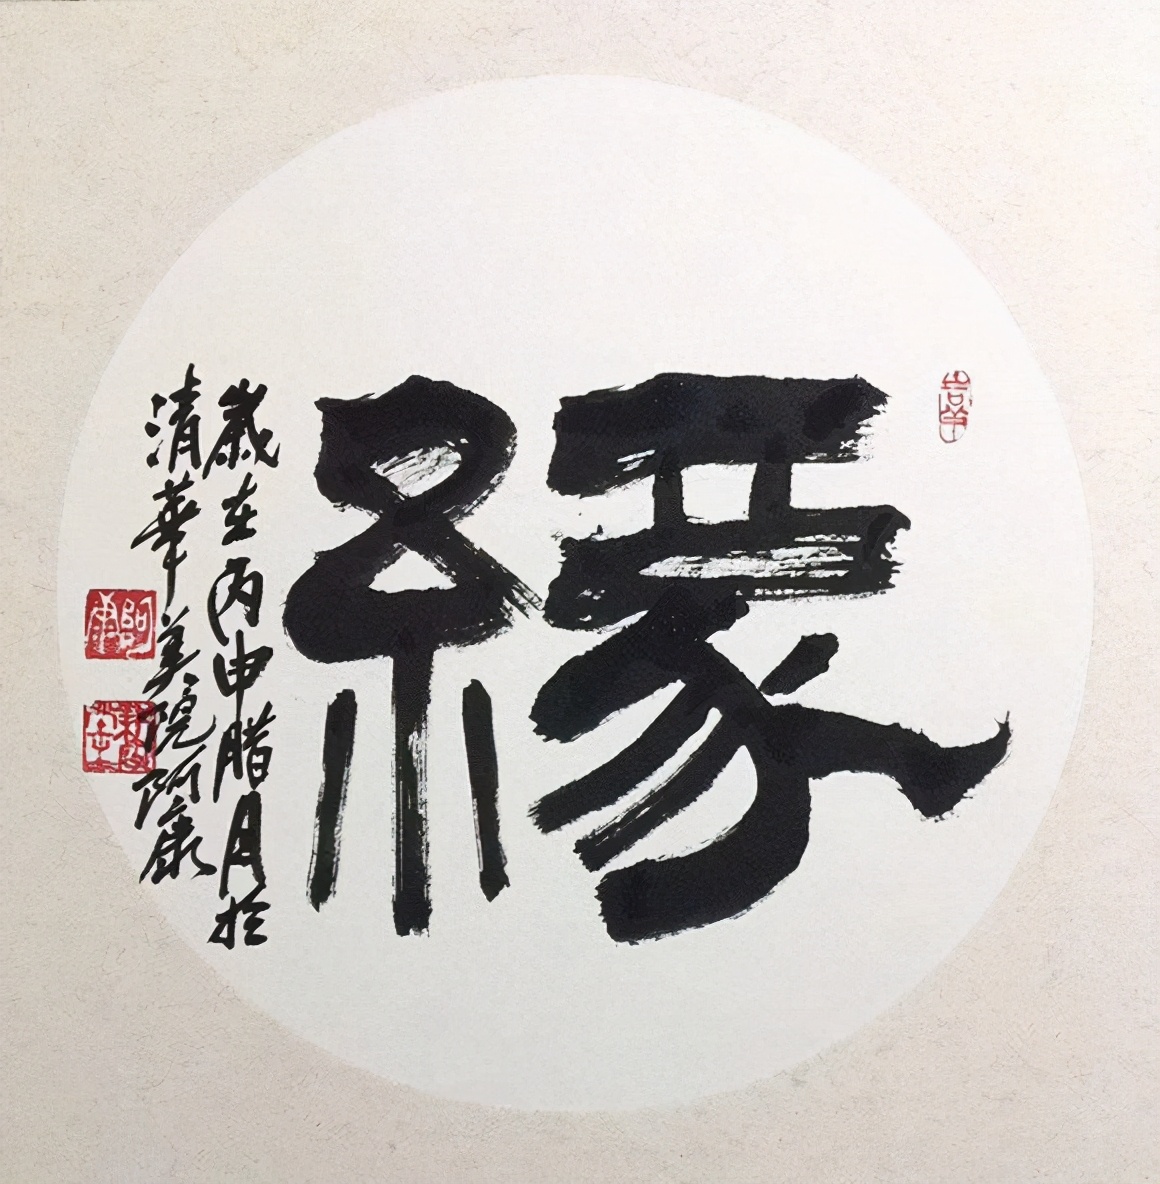 緣
歲在丙申腊月於
清華美院阿康
阿康